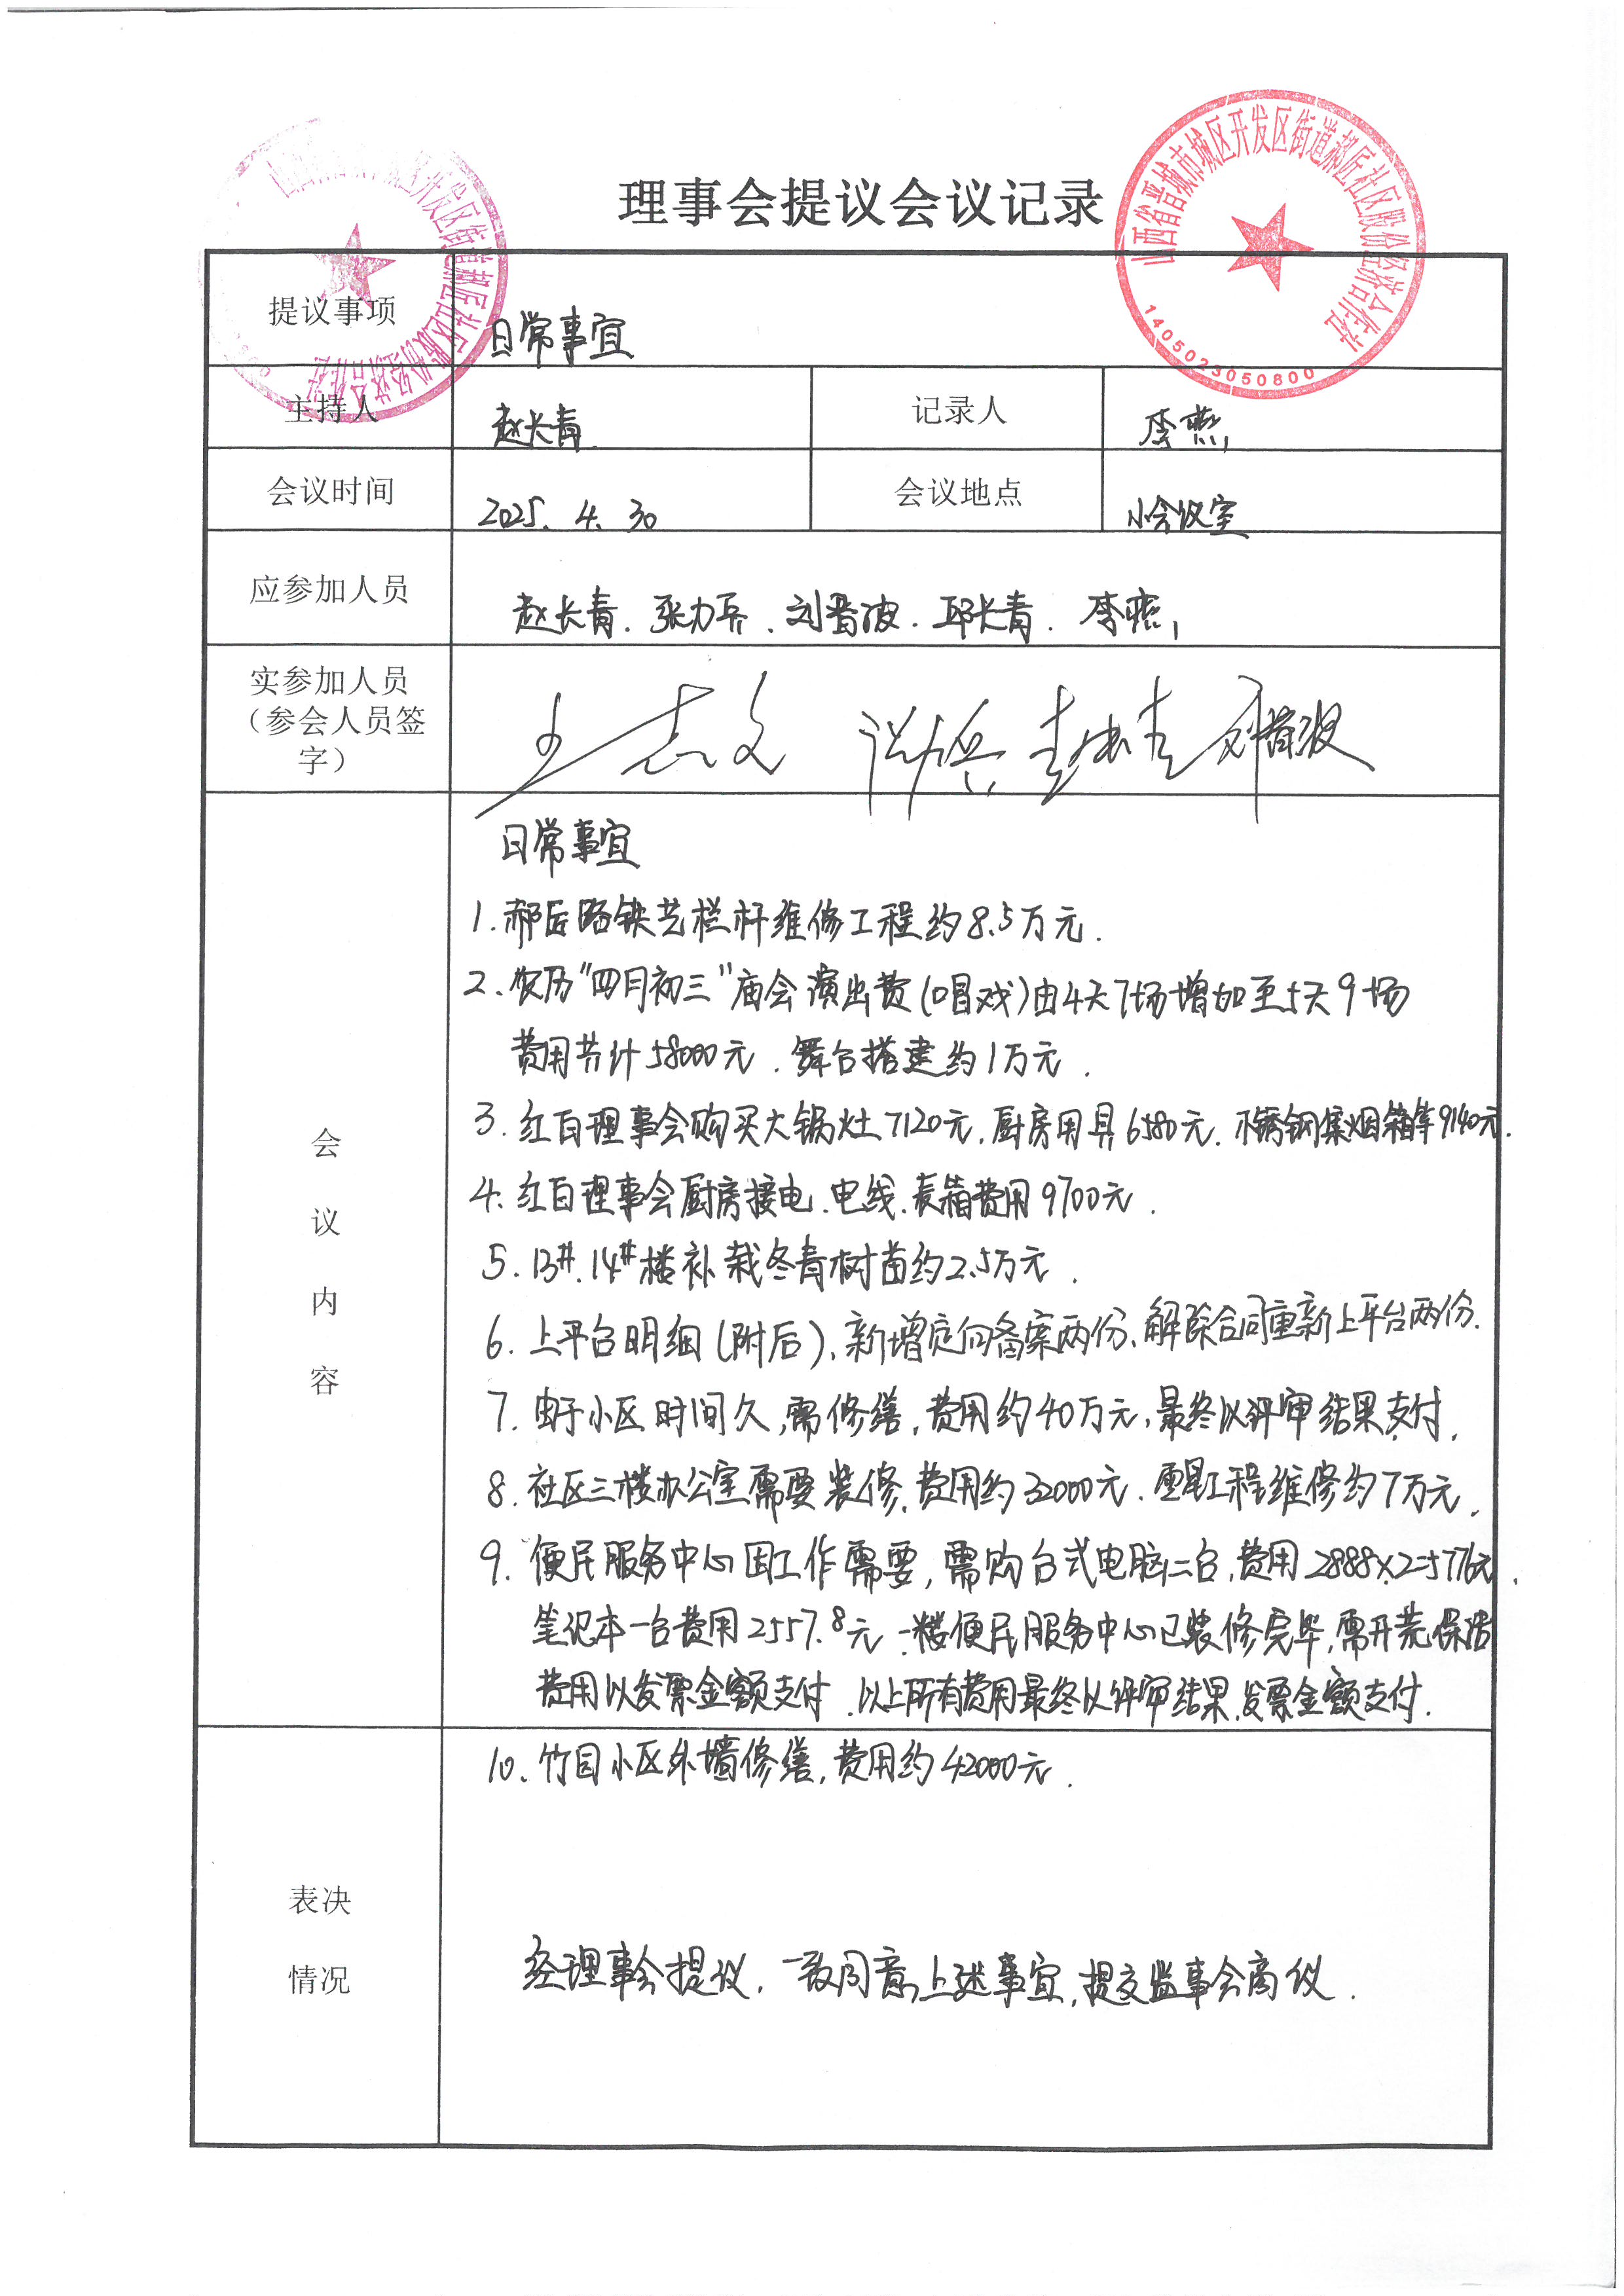 理事会提议会议记录
山西省晋城市城区开发区街道郝匠社区股份经济合作社
1405023050800
提议事项 日常事宜
主持人 赵长青 记录人 李燕
会议时间 2025.4.30 会议地点 小会议室
应参加人员 赵长青.张力兵.刘晋波.邱长青.李燕
实参加人员
（参会人员签
字）
志文 刘晋波
会议内容
日常事宜
1.郝匠路铁艺栏杆维修工程约8.5万元.
2.农历"四月初三"庙会演出费(唱戏)由4天7场增加至5天9场
费用共计58000元.舞台搭建约1万元.
3.红白理事会购买大锅灶7120元.厨房用具6580元.不锈钢集烟箱等9140元.
4.红白理事会厨房接电.电线.表箱费用9700元.
5.13#.14#楼补栽冬青树苗约2.5万元.
6.上平台明细(附后),新增定向备案两份、解除合同重新上平台两份.
7.由于小区时间久,需修缮,费用约40万元,最终以评审结果支付.
8.社区三楼办公室需要装修,费用约32000元.零星工程维修约7万元.
9.便民服务中心因工作需要,需购台式电脑二台,费用2888×2=5776元.
笔记本一台费用2557.8元.一楼便民服务中心已装修完毕,需开荒保洁
费用以发票金额支付.以上所有费用最终以评审结果,发票金额支付.
10.竹园小区外墙修缮,费用约42000元.
表决
情况
经理事会提议,一致同意上述事宜,提交监事会商议.